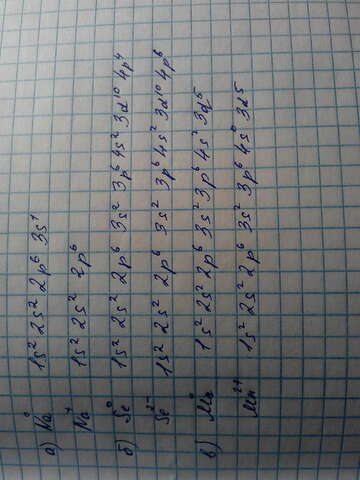 а) Na⁰ 1s² 2s² 2p⁶ 3s¹
Na⁺ 1s² 2s² 2p⁶
б) Se⁰ 1s² 2s² 2p⁶ 3s² 3p⁶ 4s² 3d¹⁰ 4p⁴
Se²⁻ 1s² 2s² 2p⁶ 3s² 3p⁶ 4s² 3d¹⁰ 4p⁶
в) Mn⁰ 1s² 2s² 2p⁶ 3s² 3p⁶ 4s² 3d⁵
Mn²⁺ 1s² 2s² 2p⁶ 3s² 3p⁶ 4s⁰ 3d⁵